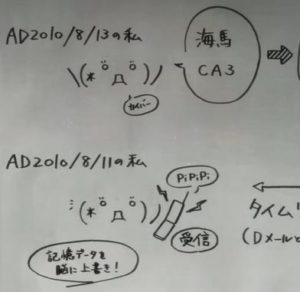 AD2010/8/13の私
海馬
CA3
\(* ö д ö )/
AD2010/8/11の私
PiPiPi
(* ö д ö )
受信
タイム
(Dメールと
記憶データを
脳に上書き!